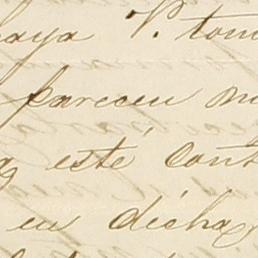 haya V. tom
parecen m
este cont
en dicha